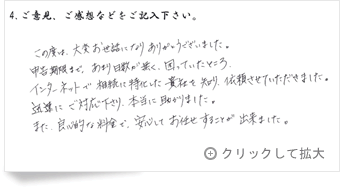 4.ご意見、ご感想などをご記入下さい。
この度は、大変お世話になりありがとうございました。
申告期限まで、あまり日数が無く、困っていたところ、
インターネットで相続に特化した貴社を知り、依頼させていただきました。
迅速にご対応下さり、本当に助かりました。
また、良心的な料金で、安心してお任せすることが出来ました。
クリックして拡大